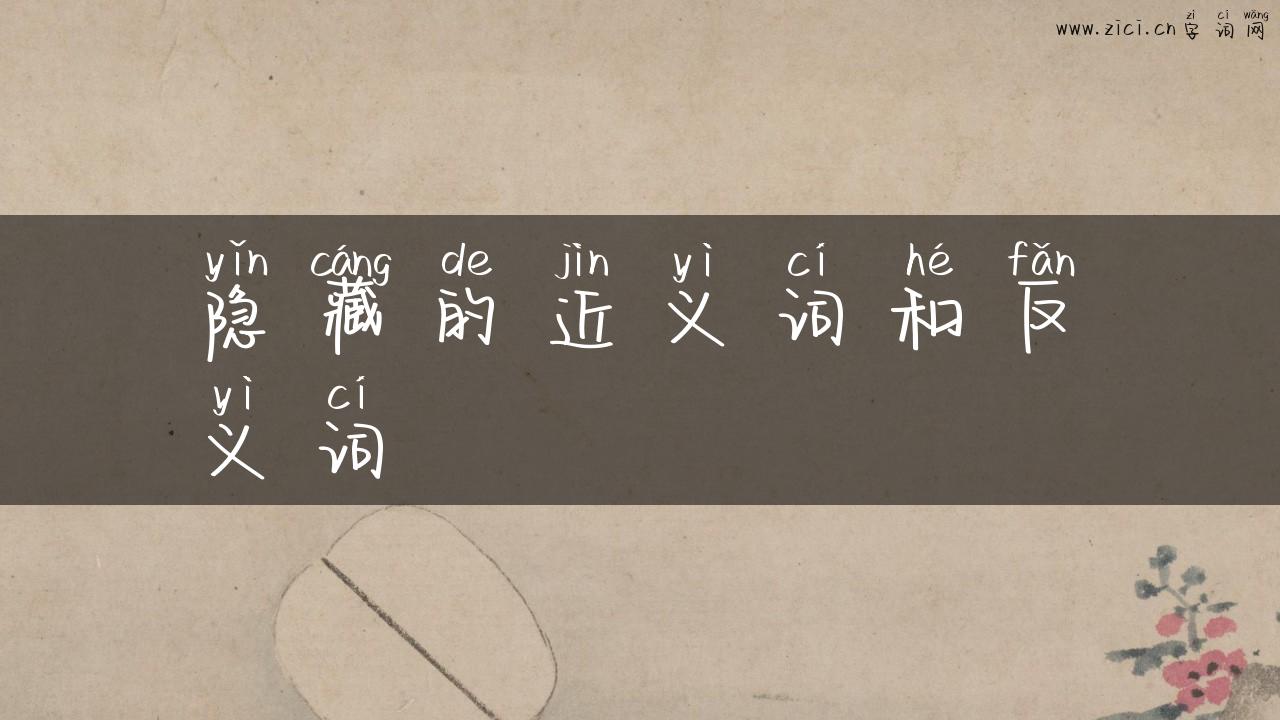 zì cí wǎng
www.zici.cn 字词网
yǐn cáng de jìn yì cí hé fǎn
隐藏的近义词和反
yì cí
义词